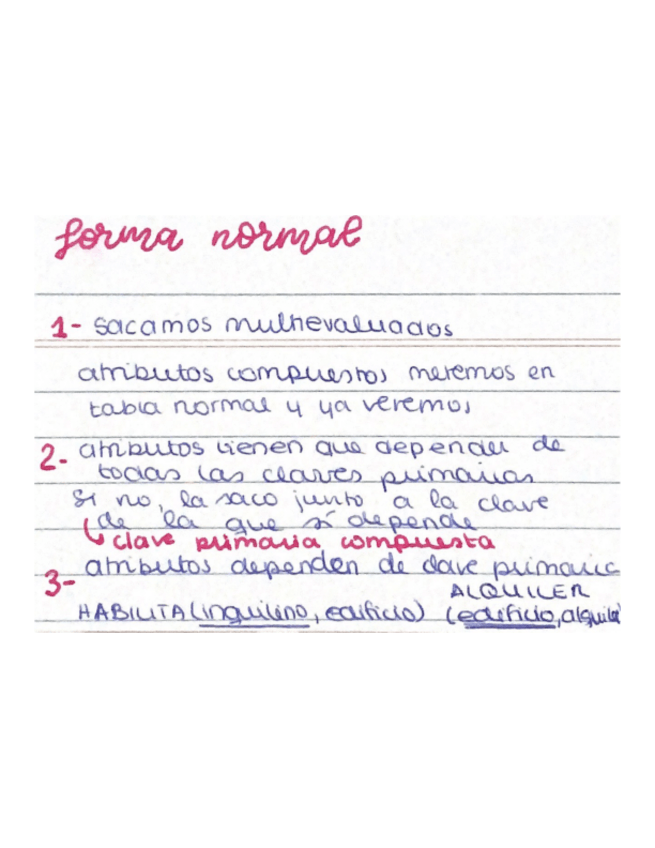 forma normal
1- sacamos multievaluados
atributos compuestos metemos en
tabla normal y ya veremos
2- atributos tienen que depender de
todas las claves primarias
si no, la saco junto a la clave
de la que sí depende
clave primaria compuesta
3- atributos dependen de clave primaria
ALQUILER
HABILITA (inquilino, edificio) (edificio, alquile